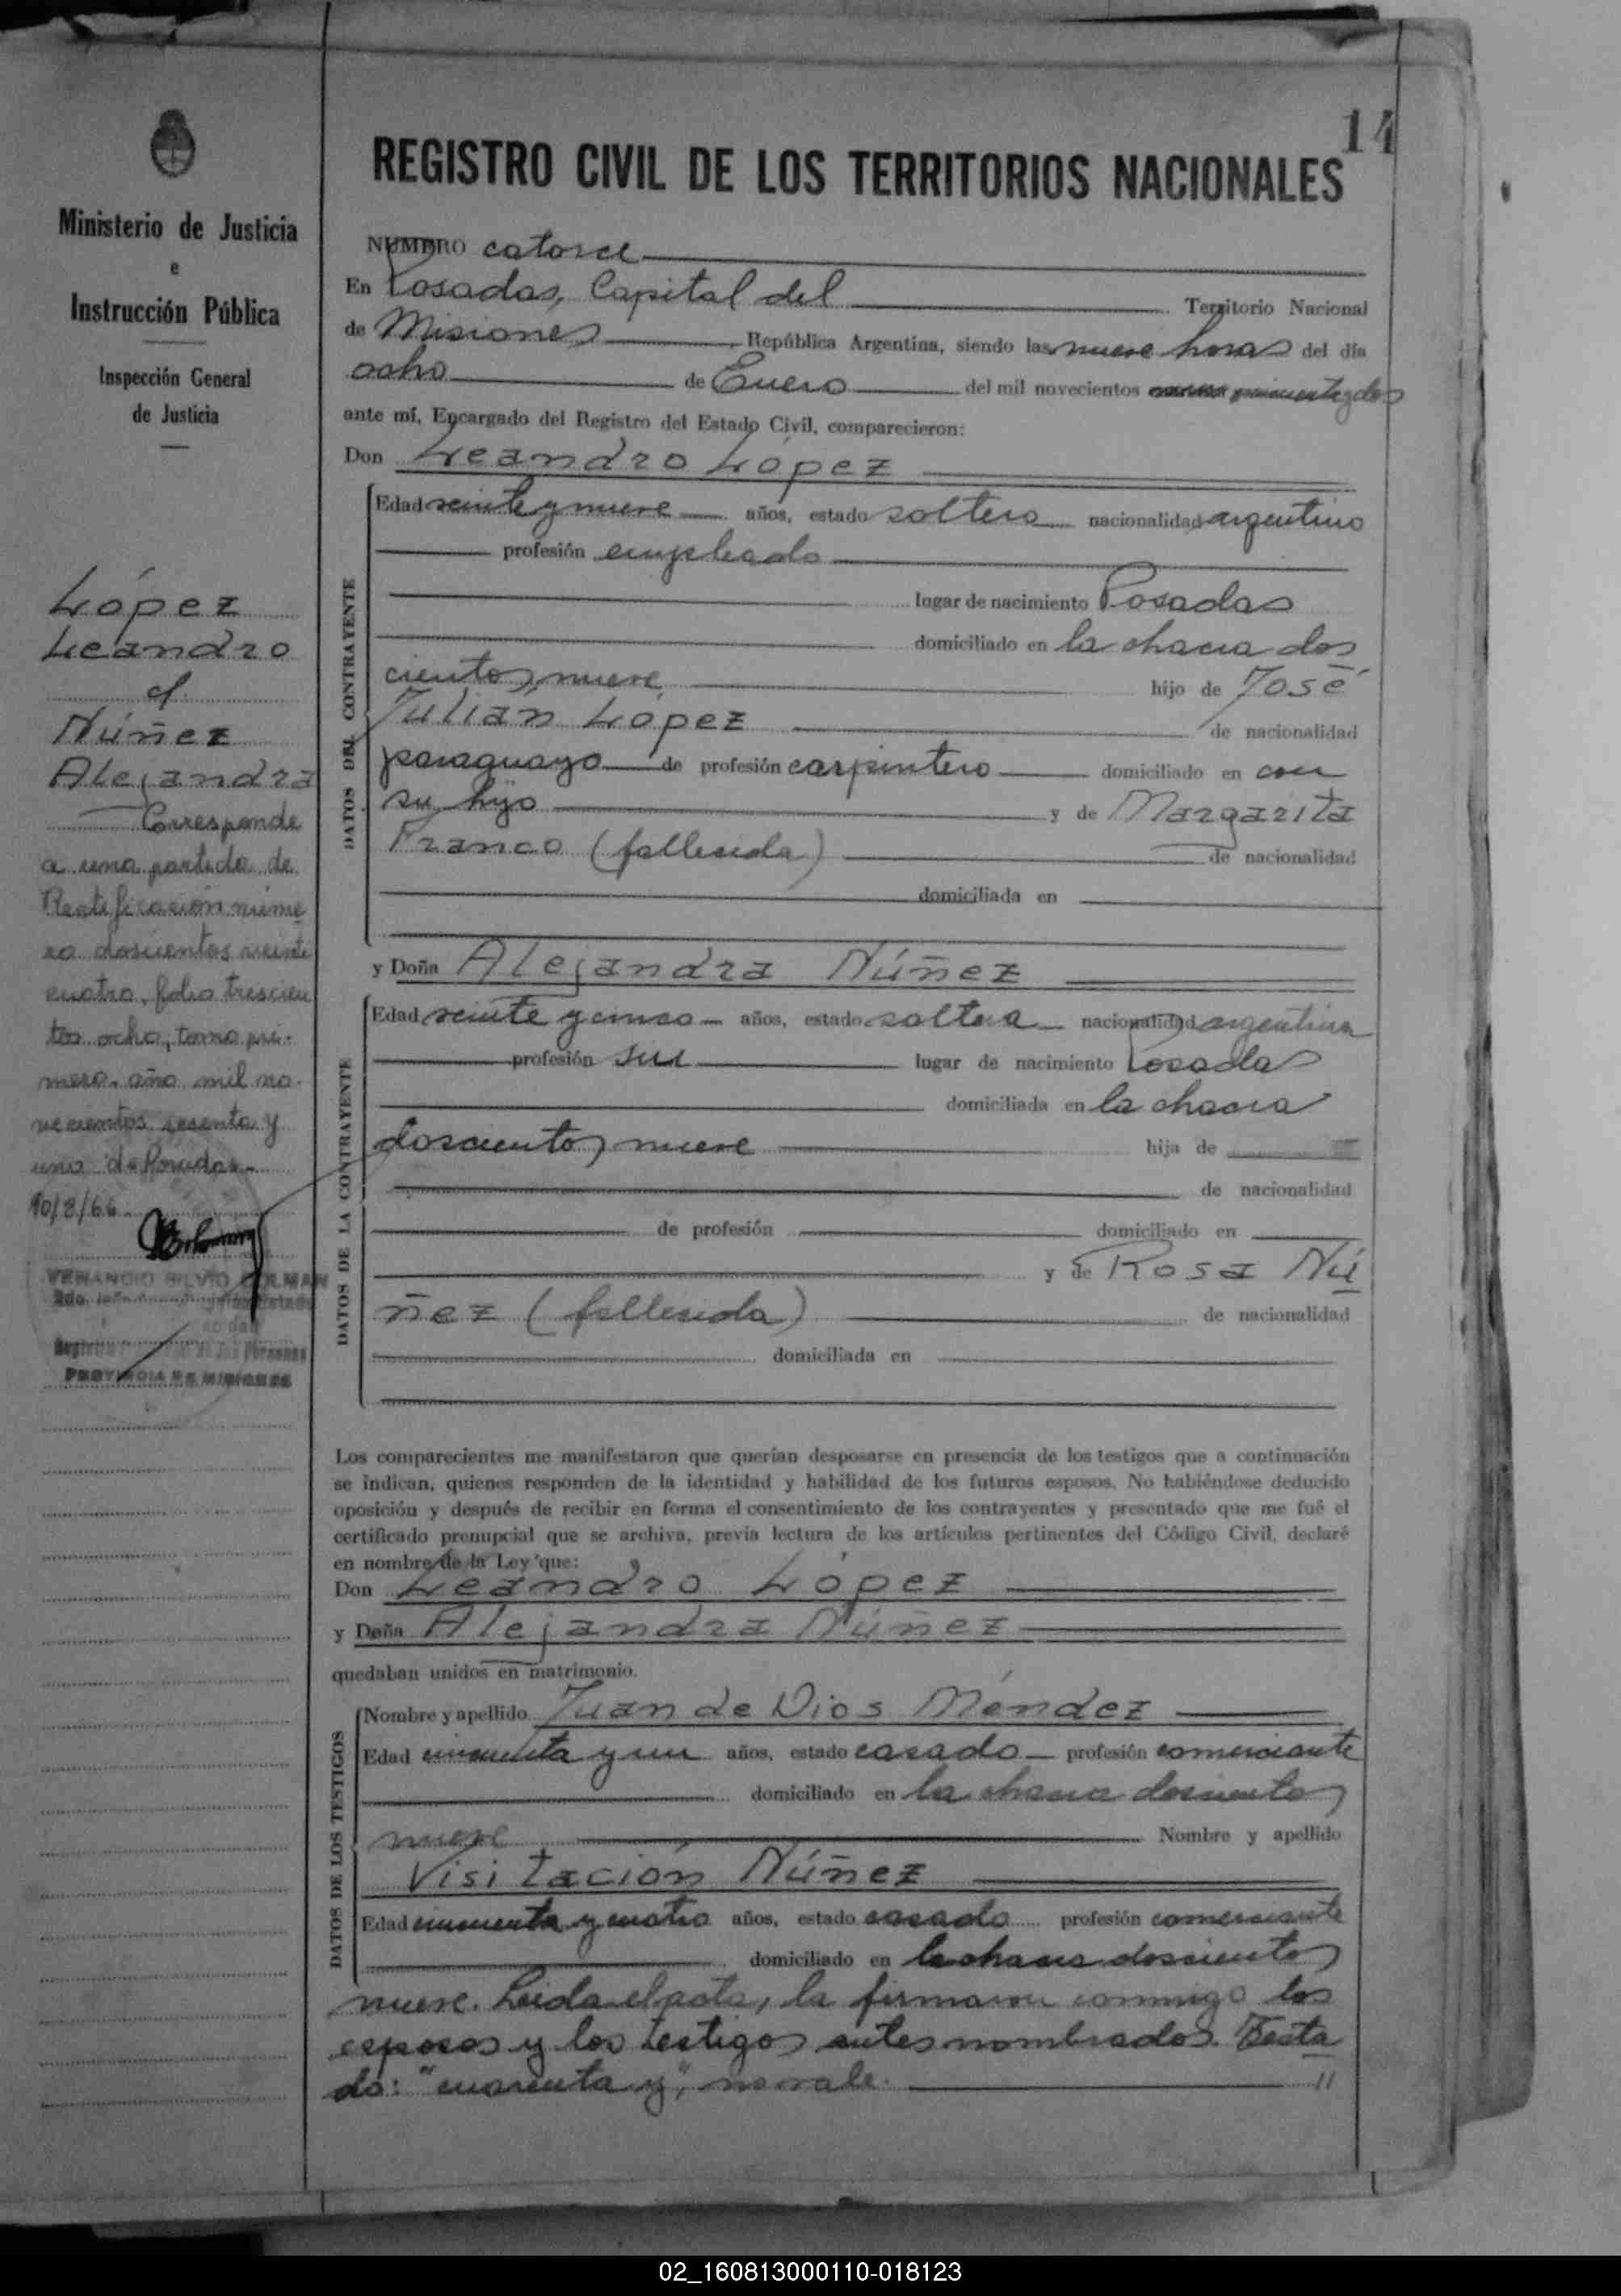 14
Ministerio de Justicia
e
Instrucción Pública
Inspección General
de Justicia
López
Leandro
c/.
Núñez
Alejandra
Corresponde
a una partida de
Rectificación núme
ro doscientos veinte
cuatro, folio trescien
tos ocho, tomo pri-
mero, año mil no-
vecientos sesenta y
uno de Posadas.-
10/8/66.
VENANCIO SILVIO COLMAN
PROVINCIA DE MISIONES
REGISTRO CIVIL DE LOS TERRITORIOS NACIONALES
NUMERO catorce
En Posadas, Capital del Territorio Nacional
de Misiones, República Argentina, siendo las nueve horas del día
ocho de Enero del mil novecientos cincuenta y dos
ante mí, Encargado del Registro del Estado Civil, comparecieron:
Don Leandro López
DATOS DEL CONTRAYENTE
Edad veinte y nueve años, estado soltero nacionalidad argentino
profesión empleado
lugar de nacimiento Posadas
domiciliado en la chacra dos
cientos nueve hijo de José
Julián López de nacionalidad
paraguayo de profesión carpintero domiciliado en con
su hijo y de Margarita
Franco (fallecida) de nacionalidad
domiciliada en
y Doña Alejandra Núñez
DATOS DE LA CONTRAYENTE
Edad veinte y cinco años, estado soltera nacionalidad argentina
profesión sin lugar de nacimiento Posadas
domiciliada en la chacra
doscientos nueve hija de
de nacionalidad
de profesión domiciliado en
y de Rosa Nú
ñez (fallecida) de nacionalidad
domiciliada en
Los comparecientes me manifestaron que querían desposarse en presencia de los testigos que a continuación
se indican, quienes responden de la identidad y habilidad de los futuros esposos. No habiéndose deducido
oposición y después de recibir en forma el consentimiento de los contrayentes y presentado que me fué el
certificado prenupcial que se archiva, previa lectura de los artículos pertinentes del Código Civil, declaré
en nombre de la Ley que:
Don Leandro López
y Doña Alejandra Núñez
quedaban unidos en matrimonio.
DATOS DE LOS TESTIGOS
Nombre y apellido Juan de Dios Méndez
Edad cincuenta y un años, estado casado profesión comerciante
domiciliado en la chacra doscientos
nueve Nombre y apellido
Visitación Núñez
Edad cincuenta y cuatro años, estado casado profesión comerciante
domiciliado en la chacra doscientos
nueve. Leida el acta, la firmaron conmigo los
esposos y los testigos antes nombrados. Testa
do: "cuarenta y", no vale. //
02_160813000110-018123